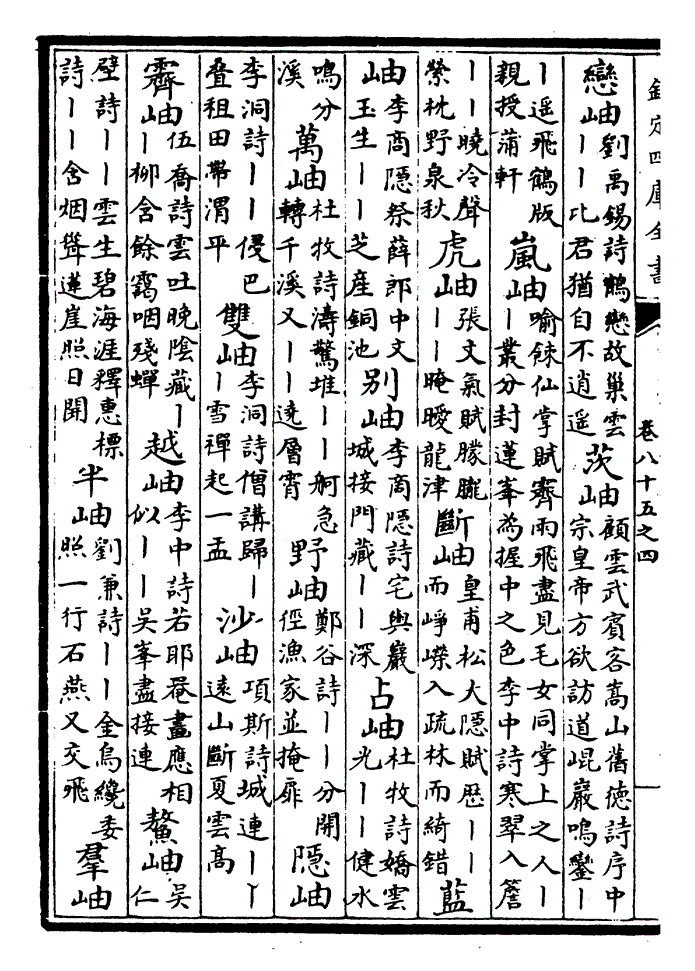 欽定四庫全書
卷八十五之四
戀岫劉禹錫詩鶴戀故巢雲丨丨比君猶自不逍遥茨岫顧雲武賓客嵩山舊徳詩序中宗皇帝方欲訪道崆巖鳴鑾丨
丨遥飛鶴版親授蒲軒嵐岫喻餗仙掌賦霽雨飛盡見毛女同掌上之人丨丨叢分封蓮峯為握中之色李中詩寒翠入簷
丨丨曉冷聲縈枕野泉秋虎岫張文氣賦朦朧丨丨晻曖龍津斷岫皇甫松大隠賦歴丨丨而崢嶸入疏林而綺錯藍
岫李商隠祭薛郎中文玉生丨丨芝産銅池别岫李商隠詩宅與巖城接門藏丨丨深占岫杜牧詩嬌雲光丨丨健水
鳴分溪萬岫杜牧詩濤驚堆丨丨舸急轉千溪又丨丨遶層霄野岫鄭谷詩丨丨分開徑漁家並掩扉隠岫
李洞詩丨丨侵巴叠租田帶渭平雙岫李洞詩僧講歸丨丨雪禪起一盂沙岫項斯詩城連丨丫遠山斷夏雲髙
霽岫伍喬詩雲吐晚陰藏丨丨柳含餘靄咽殘蟬越岫李中詩若耶罨畫應相似丨丨吳峯盡接連鰲岫吳仁
璧詩丨丨雲生碧海涯釋惠標詩丨丨含烟聳蓮崖照日開半岫劉兼詩丨丨金烏纔委照一行石燕又交飛羣岫